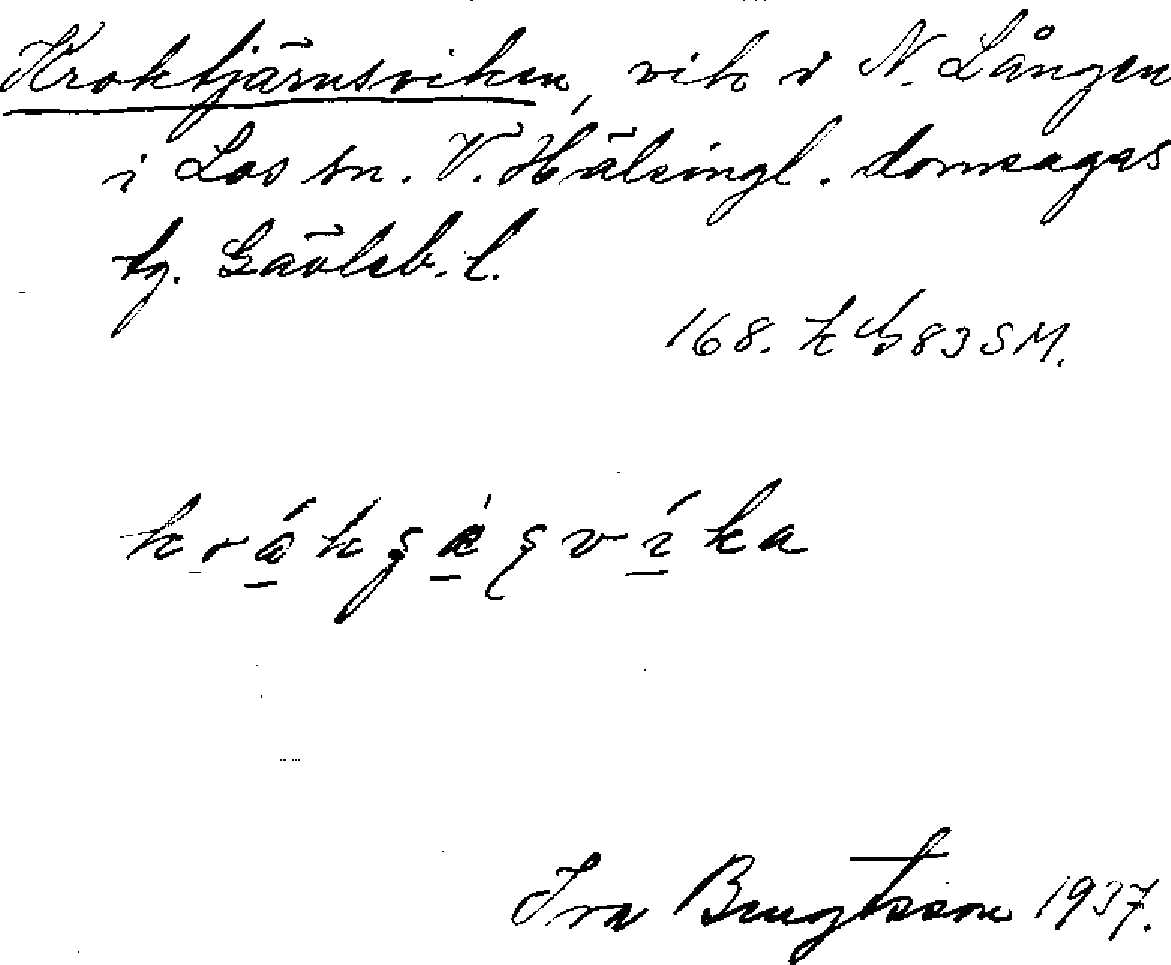 Kroktjärnsviken, vik i N. Lången
i Los sn. V. Hälsingl. domsagas
tg. Gävleb. l.
168. 83 SM.
Iva Bengtsson 1937.